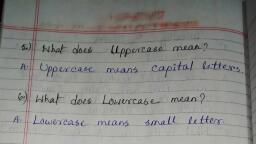 What does Uppercase mean?
A. Uppercase means capital letters.
What does Lowercase mean?
A. Lowercase means small letter.